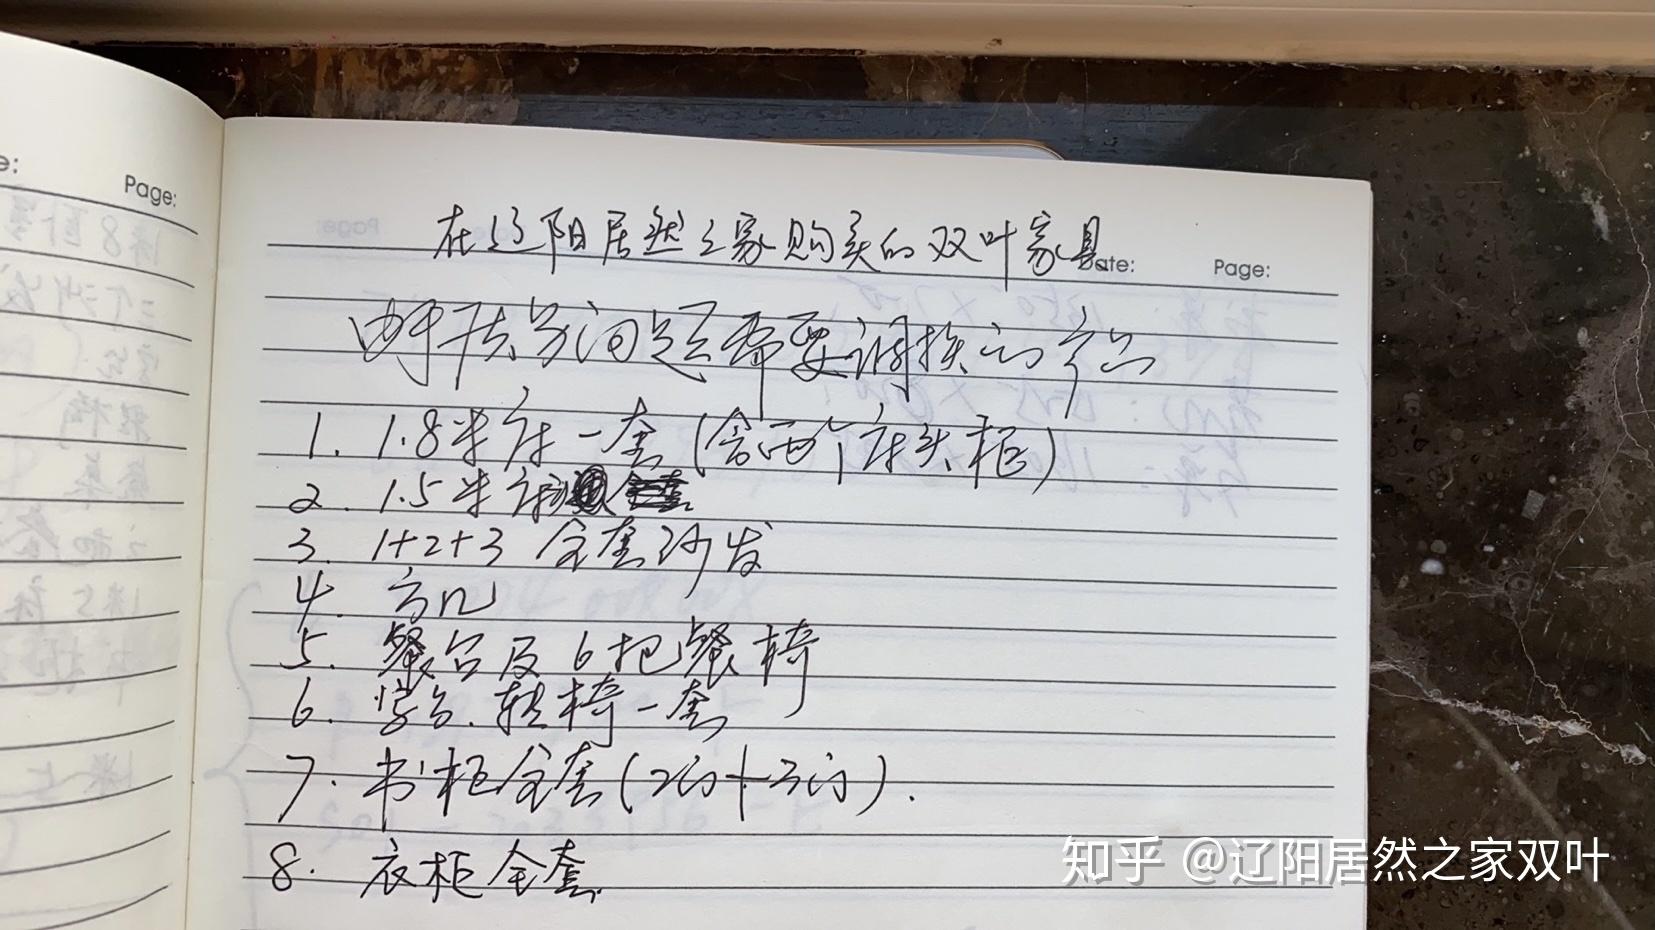 e:
Page:
在辽阳居然之家购买的双叶家具
Date:
Page:
由于质量问题需要调换的产品
1. 1.8米床一套(含两个床头柜)
2. 1.5米床
3. 1+2+3 全套沙发
4. 方几
5. 餐台及6把餐椅
6. 写台.转椅一套
7. 书柜全套(2门+3门).
8. 衣柜全套.
知乎 @辽阳居然之家双叶